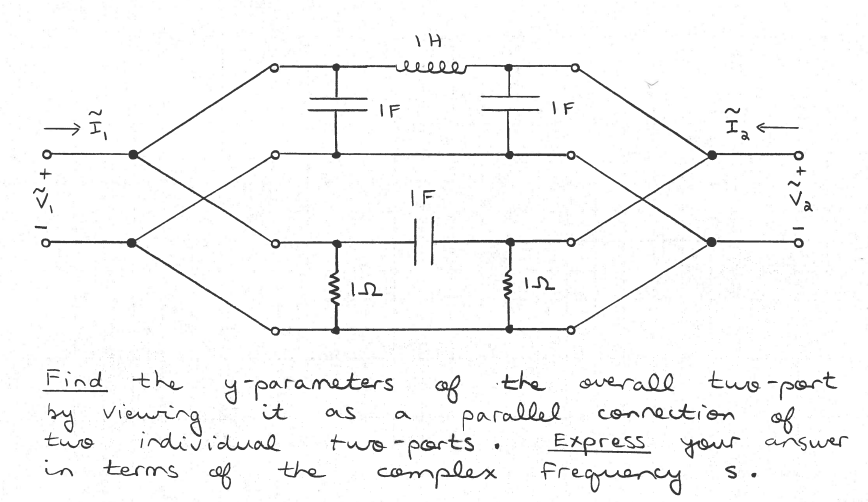 1H
1F
1F
Ĩ₁
Ĩ₂
+
Ṽ₁
-
+
Ṽ₂
-
1F
1Ω
1Ω
Find the y-parameters of the overall two-port
by viewing it as a parallel connection of
two individual two-ports. Express your answer
in terms of the complex frequency s.